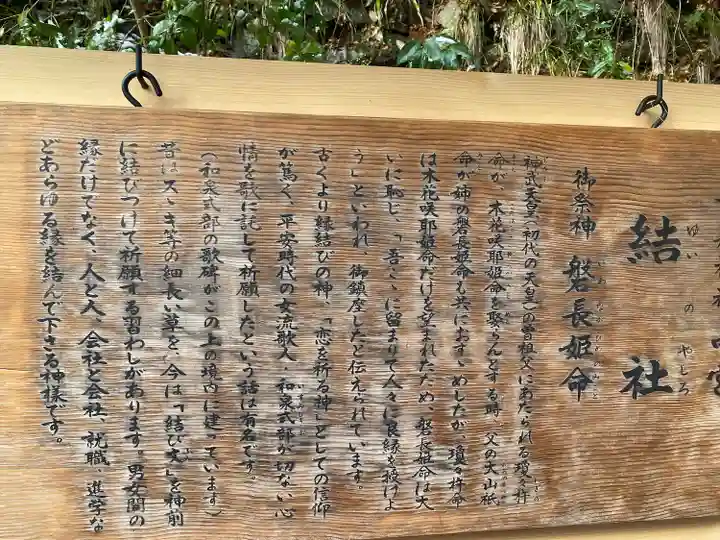 結社
ゆいのやしろ
御祭神 磐長姫命
神武天皇(初代の天皇)の曽祖父にあたられる瓊々杵
命が、木花咲耶姫命を娶らんとする時、父の大山祇
命が姉の磐長姫命も共におすゝめしたが、瓊々杵命
は木花咲耶姫命だけを望まれたため、磐長姫命は大
いに恥じ、「吾こゝに留まりて人々に良縁を授けよ
う」といわれ、御鎮座したと伝えられています。
古くより縁結びの神、「恋を祈る神」としての信仰
が篤く、平安時代の女流歌人・和泉式部が切ない心
情を歌に託して祈願したという話は有名です。
(和泉式部の歌碑がこの上の境内に建っています)
昔はスゝキ等の細長い草を、今は「結び文」を神前
に結びつけて祈願する習わしがあります。男女間の
縁だけでなく、人と人、会社と会社、就職、進学な
どあらゆる縁を結んで下さる神様です。